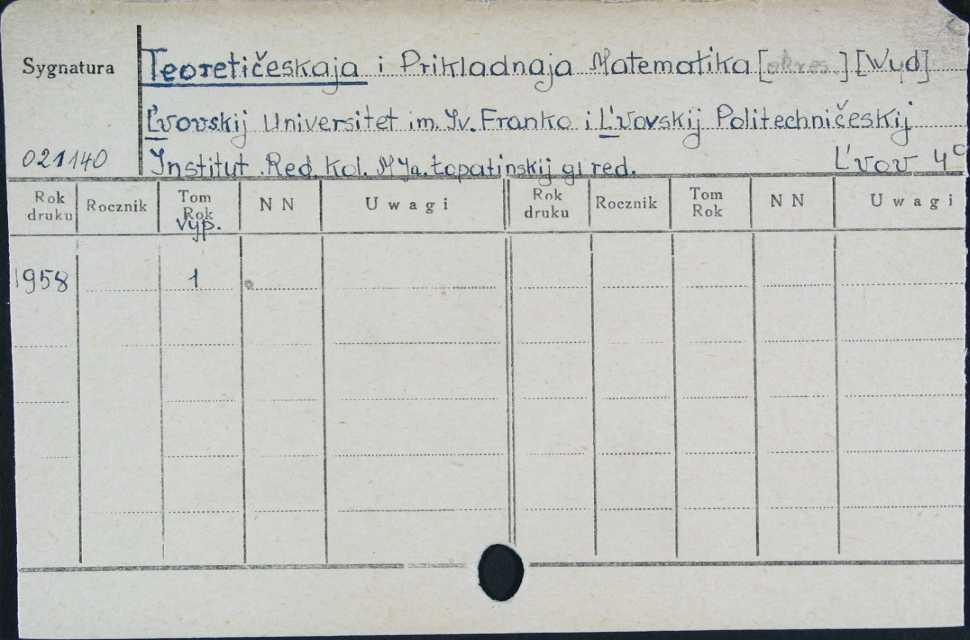 Sygnatura Teoretičeskaja i Prikladnaja Matematika [okres.] [Wyd]
L'vovskij Universitet im. Iv. Franko i L'vovskij Politechničeskij
021140 Institut. Red. kol. Ja. Łopatinskij gł red. L'vov 4°
Rok druku Rocznik Tom Rok Vyp. NN Uwagi Rok druku Rocznik Tom Rok NN Uwagi
1958 1